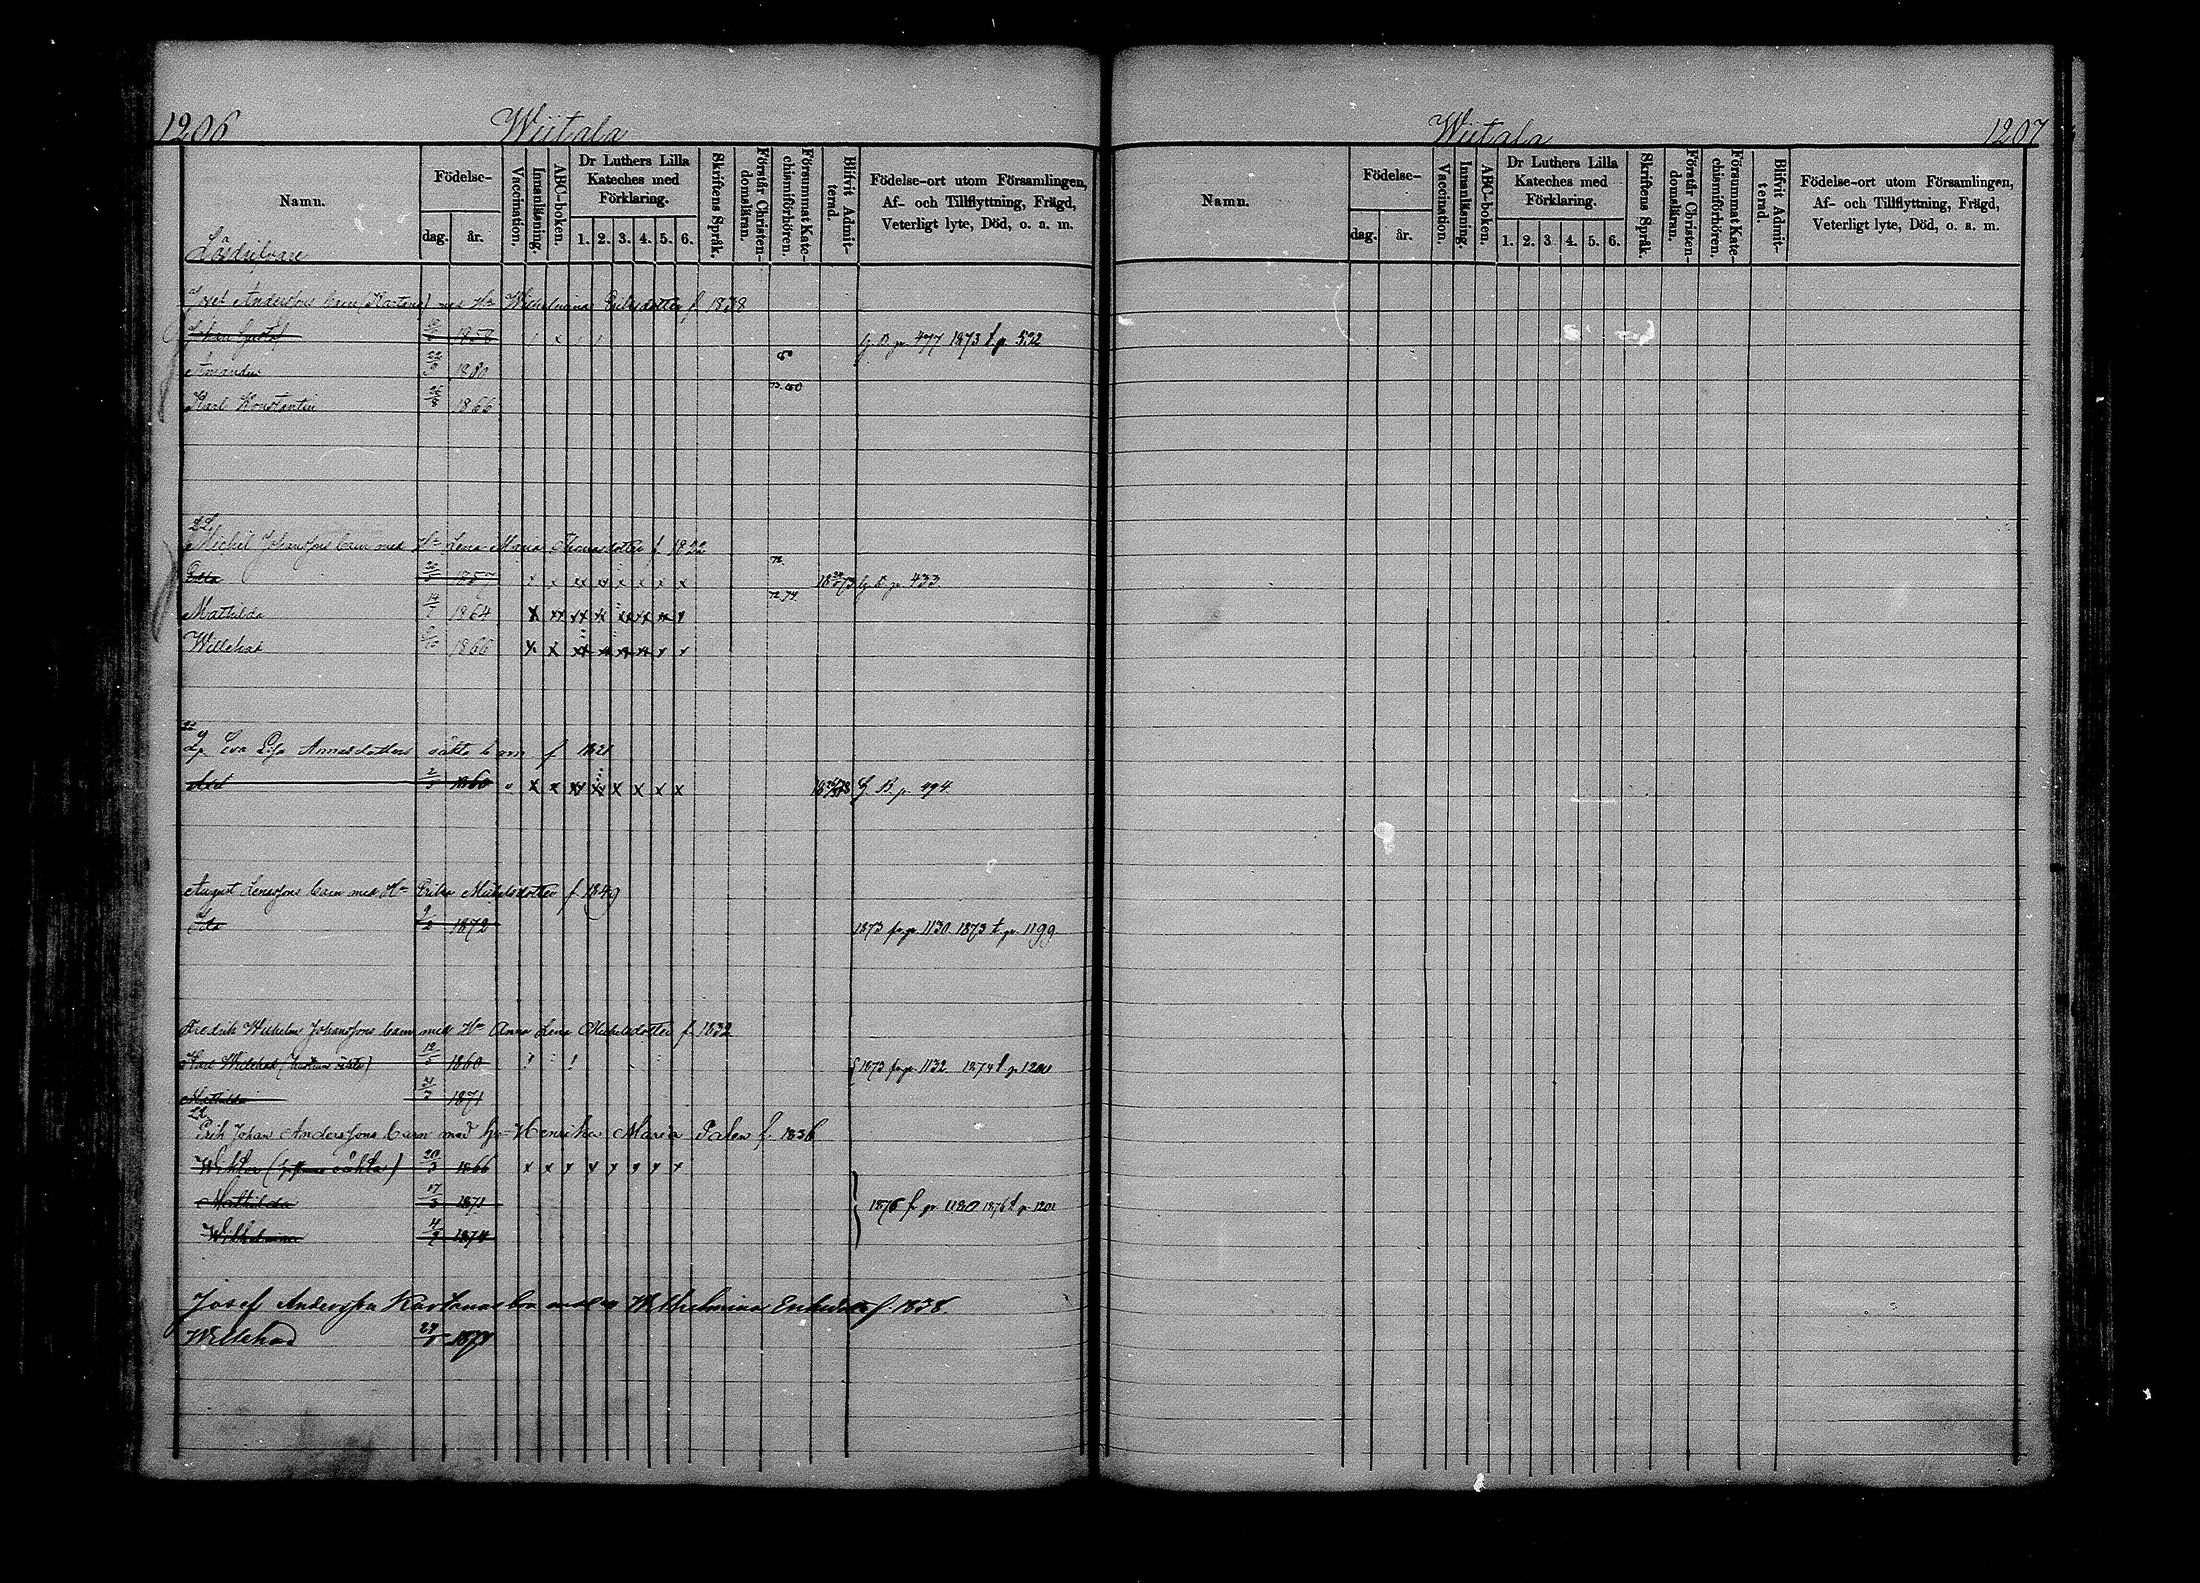 1206 Wiitala
Namn. Födelse- dag. år. Vaccination. Innanläsning. ABC-boken. Dr Luthers Lilla Kateches med Förklaring. 1. 2. 3. 4. 5. 6. Skriftens Språk. Förstår Christendomsläran. Försummat Katechismiförhören. Blifvit Admitterad. Födelse-ort utom Församlingen, Af- och Tillflyttning, Frägd, Veterligt lyte, Död, o. a. m.
Lösdrifvare
Josef Anderssons barn (Kartano) med Hu Wilhelmina Eriksdotter f. 1838
Johan Gustaf 1858 G. B. p. 477 1873 t. p. 532
Amanda 1860
Karl Konstantin 26/8 1866
Michel Johanssons barn med Hu Lena Maria Thomasdotter f. 1822
1857 x x xx xx x x x x G. B. p. 433.
Mathilda 14/7 1864 x xx xx xx xx xx xx x
Willehad 1866 x x
Eva Lisa Annasdotters oäkta barn f 1821
2/3 1860 x x xx xx x x x x G. B. p. 494.
August Lenassons barn med Hu Erika Michelsdotter f 1849
Ida 9/2 1872 1873 fr. p. 1130. 1873 t. p. 1199
Fredrik Wilhelm Johanssons barn med Hu Anna Lena Michelsdotter f. 1832
Karl Willehad (hustruns oäkta) 12/5 1860 1873 fr. p. 1132 1874 t. p. 1200
Mathilda 31/3 1871
Erik Johan Anderssons barn med Hu Henrika Maria Palen f. 1836
Wiktor ( oäkta) 20/3 1866 x x x x x x x x
Mathilda 17/3 1871 1876 f. p. 1180 1876 t. p. 1201
Wilhelmina 4/9 1874
Josef Anderssn Kartanos brn med Wilhelmina f. 1838
Willehad
Wiitala 1207
Namn. Födelse- dag. år. Vaccination. Innanläsning. ABC-boken. Dr Luthers Lilla Kateches med Förklaring. 1. 2. 3 4. 5. 6. Skriftens Språk. Förstår Christendomsläran. Försummat Katechismiförhören. Blifvit Admitterad. Födelse-ort utom Församlingen, Af- och Tillflyttning, Frägd, Veterligt lyte, Död, o. a. m.